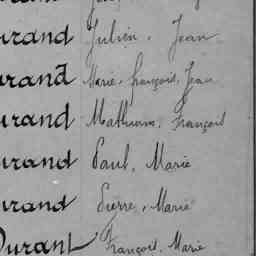 Durand Julien, Jean
Durand Marie, François, Jean
Durand Mathurin, François
Durand Paul, Marie
Durand Pierre, Marie
Durant François, Marie